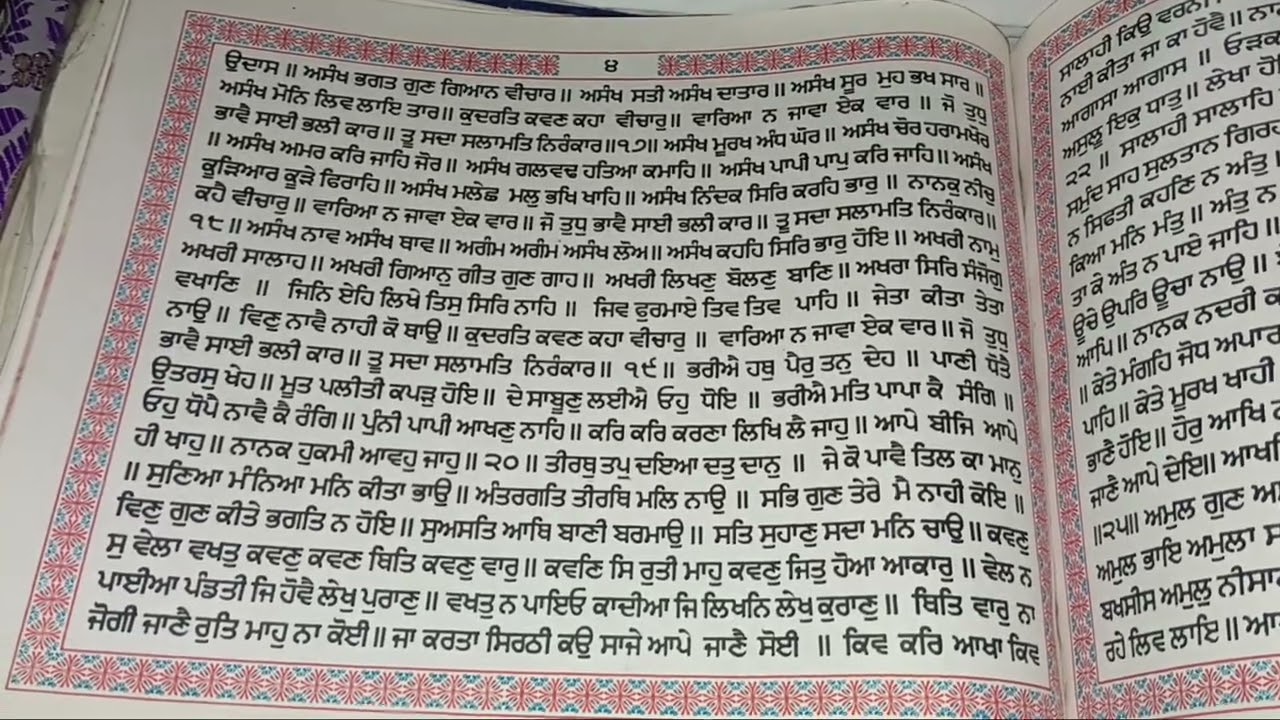 ੪
ਉਦਾਸ ॥ ਅਸੰਖ ਭਗਤ ਗੁਣ ਗਿਆਨ ਵੀਚਾਰ ॥ ਅਸੰਖ ਸਤੀ ਅਸੰਖ ਦਾਤਾਰ ॥ ਅਸੰਖ ਸੂਰ ਮੁਹ ਭਖ ਸਾਰ ॥
ਅਸੰਖ ਮੋਨਿ ਲਿਵ ਲਾਇ ਤਾਰ ॥ ਕੁਦਰਤਿ ਕਵਣ ਕਹਾ ਵੀਚਾਰੁ ॥ ਵਾਰਿਆ ਨ ਜਾਵਾ ਏਕ ਵਾਰ ॥ ਜੋ ਤੁਧੁ
ਭਾਵੈ ਸਾਈ ਭਲੀ ਕਾਰ ॥ ਤੂ ਸਦਾ ਸਲਾਮਤਿ ਨਿਰੰਕਾਰ ॥੧੭॥ ਅਸੰਖ ਮੂਰਖ ਅੰਧ ਘੋਰ ॥ ਅਸੰਖ ਚੋਰ ਹਰਾਮਖੋਰ
॥ ਅਸੰਖ ਅਮਰ ਕਰਿ ਜਾਹਿ ਜੋਰ ॥ ਅਸੰਖ ਗਲਵਢ ਹਤਿਆ ਕਮਾਹਿ ॥ ਅਸੰਖ ਪਾਪੀ ਪਾਪੁ ਕਰਿ ਜਾਹਿ ॥ ਅਸੰਖ
ਕੂੜਿਆਰ ਕੂੜੇ ਫਿਰਾਹਿ ॥ ਅਸੰਖ ਮਲੇਛ ਮਲੁ ਭਖਿ ਖਾਹਿ ॥ ਅਸੰਖ ਨਿੰਦਕ ਸਿਰਿ ਕਰਹਿ ਭਾਰੁ ॥ ਨਾਨਕੁ ਨੀਚੁ
ਕਹੈ ਵੀਚਾਰੁ ॥ ਵਾਰਿਆ ਨ ਜਾਵਾ ਏਕ ਵਾਰ ॥ ਜੋ ਤੁਧੁ ਭਾਵੈ ਸਾਈ ਭਲੀ ਕਾਰ ॥ ਤੂ ਸਦਾ ਸਲਾਮਤਿ ਨਿਰੰਕਾਰ ॥
੧੮॥ ਅਸੰਖ ਨਾਵ ਅਸੰਖ ਥਾਵ ॥ ਅਗੰਮ ਅਗੰਮ ਅਸੰਖ ਲੋਅ ॥ ਅਸੰਖ ਕਹਹਿ ਸਿਰਿ ਭਾਰੁ ਹੋਇ ॥ ਅਖਰੀ ਨਾਮੁ
ਅਖਰੀ ਸਾਲਾਹ ॥ ਅਖਰੀ ਗਿਆਨੁ ਗੀਤ ਗੁਣ ਗਾਹ ॥ ਅਖਰੀ ਲਿਖਣੁ ਬੋਲਣੁ ਬਾਣਿ ॥ ਅਖਰਾ ਸਿਰਿ ਸੰਜੋਗੁ
ਵਖਾਣਿ ॥ ਜਿਨਿ ਏਹਿ ਲਿਖੇ ਤਿਸੁ ਸਿਰਿ ਨਾਹਿ ॥ ਜਿਵ ਫੁਰਮਾਏ ਤਿਵ ਤਿਵ ਪਾਹਿ ॥ ਜੇਤਾ ਕੀਤਾ ਤੇਤਾ
ਨਾਉ ॥ ਵਿਣੁ ਨਾਵੈ ਨਾਹੀ ਕੋ ਥਾਉ ॥ ਕੁਦਰਤਿ ਕਵਣ ਕਹਾ ਵੀਚਾਰੁ ॥ ਵਾਰਿਆ ਨ ਜਾਵਾ ਏਕ ਵਾਰ ॥ ਜੋ ਤੁਧੁ
ਭਾਵੈ ਸਾਈ ਭਲੀ ਕਾਰ ॥ ਤੂ ਸਦਾ ਸਲਾਮਤਿ ਨਿਰੰਕਾਰ ॥ ੧੯॥ ਭਰੀਐ ਹਥੁ ਪੈਰੁ ਤਨੁ ਦੇਹ ॥ ਪਾਣੀ ਧੋਤੈ
ਉਤਰਸੁ ਖੇਹ ॥ ਮੂਤ ਪਲੀਤੀ ਕਪੜੁ ਹੋਇ ॥ ਦੇ ਸਾਬੂਣੁ ਲਈਐ ਓਹੁ ਧੋਇ ॥ ਭਰੀਐ ਮਤਿ ਪਾਪਾ ਕੈ ਸੰਗਿ ॥
ਓਹੁ ਧੋਪੈ ਨਾਵੈ ਕੈ ਰੰਗਿ ॥ ਪੁੰਨੀ ਪਾਪੀ ਆਖਣੁ ਨਾਹਿ ॥ ਕਰਿ ਕਰਿ ਕਰਣਾ ਲਿਖਿ ਲੈ ਜਾਹੁ ॥ ਆਪੇ ਬੀਜਿ ਆਪੇ
ਹੀ ਖਾਹੁ ॥ ਨਾਨਕ ਹੁਕਮੀ ਆਵਹੁ ਜਾਹੁ ॥ ੨੦॥ ਤੀਰਥੁ ਤਪੁ ਦਇਆ ਦਤੁ ਦਾਨੁ ॥ ਜੇ ਕੋ ਪਾਵੈ ਤਿਲ ਕਾ ਮਾਨੁ
॥ ਸੁਣਿਆ ਮੰਨਿਆ ਮਨਿ ਕੀਤਾ ਭਾਉ ॥ ਅੰਤਰਗਤਿ ਤੀਰਥਿ ਮਲਿ ਨਾਉ ॥ ਸਭਿ ਗੁਣ ਤੇਰੇ ਮੈ ਨਾਹੀ ਕੋਇ ॥
ਵਿਣੁ ਗੁਣ ਕੀਤੇ ਭਗਤਿ ਨ ਹੋਇ ॥ ਸੁਅਸਤਿ ਆਥਿ ਬਾਣੀ ਬਰਮਾਉ ॥ ਸਤਿ ਸੁਹਾਣੁ ਸਦਾ ਮਨਿ ਚਾਉ ॥ ਕਵਣੁ
ਸੁ ਵੇਲਾ ਵਖਤੁ ਕਵਣੁ ਕਵਣ ਥਿਤਿ ਕਵਣੁ ਵਾਰੁ ॥ ਕਵਣਿ ਸਿ ਰੁਤੀ ਮਾਹੁ ਕਵਣੁ ਜਿਤੁ ਹੋਆ ਆਕਾਰੁ ॥ ਵੇਲ ਨ
ਪਾਈਆ ਪੰਡਤੀ ਜਿ ਹੋਵੈ ਲੇਖੁ ਪੁਰਾਣੁ ॥ ਵਖਤੁ ਨ ਪਾਇਓ ਕਾਦੀਆ ਜਿ ਲਿਖਨਿ ਲੇਖੁ ਕੁਰਾਣੁ ॥ ਥਿਤਿ ਵਾਰੁ ਨਾ
ਜੋਗੀ ਜਾਣੈ ਰੁਤਿ ਮਾਹੁ ਨਾ ਕੋਈ ॥ ਜਾ ਕਰਤਾ ਸਿਰਠੀ ਕਉ ਸਾਜੇ ਆਪੇ ਜਾਣੈ ਸੋਈ ॥ ਕਿਵ ਕਰਿ ਆਖਾ ਕਿਵ
ਸਾਲਾਹੀ ਕਿਉ ਵਰਨੀ
ਨਾਈ ਕੀਤਾ ਜਾ ਕਾ ਹੋਵੈ ॥
ਆਗਾਸਾ ਆਗਾਸ ॥ ਓੜਕ
ਅਸੁਲੂ ਇਕੁ ਧਾਤੁ ॥ ਲੇਖਾ
੨੨ ॥ ਸਾਲਾਹੀ ਸਾਲਾਹਿ
ਸਮੁੰਦ ਸਾਹ ਸੁਲਤਾਨ
ਨ ਸਿਫਤੀ ਕਹਣਿ ਨ ਅੰਤੁ
ਕਿਆ ਮਨਿ ਮੰਤੁ ॥ ਅੰਤੁ ਨ
ਤਾ ਕੇ ਅੰਤ ਨ ਪਾਏ ਜਾਹਿ ॥
ਊਚੇ ਉਪਰਿ ਊਚਾ ਨਾਉ ॥
ਆਪਿ ॥ ਨਾਨਕ ਨਦਰੀ
॥ ਕੇਤੇ ਮੰਗਹਿ ਜੋਧ ਅਪਾਰ
ਪਾਹਿ ॥ ਕੇਤੇ ਮੂਰਖ ਖਾਹੀ
ਭਾਣੈ ਹੋਇ ॥ ਹੋਰੁ ਆਖਿ
ਜਾਣੈ ਆਪੇ ਦੇਇ ॥ ਆਖਹਿ
॥੨੫॥ ਅਮੁਲ ਗੁਣ
ਅਮੁਲ ਭਾਇ ਅਮੁਲਾ
ਬਖਸੀਸ ਅਮੁਲੁ ਨੀਸਾਣ
ਰਹੇ ਲਿਵ ਲਾਇ ॥